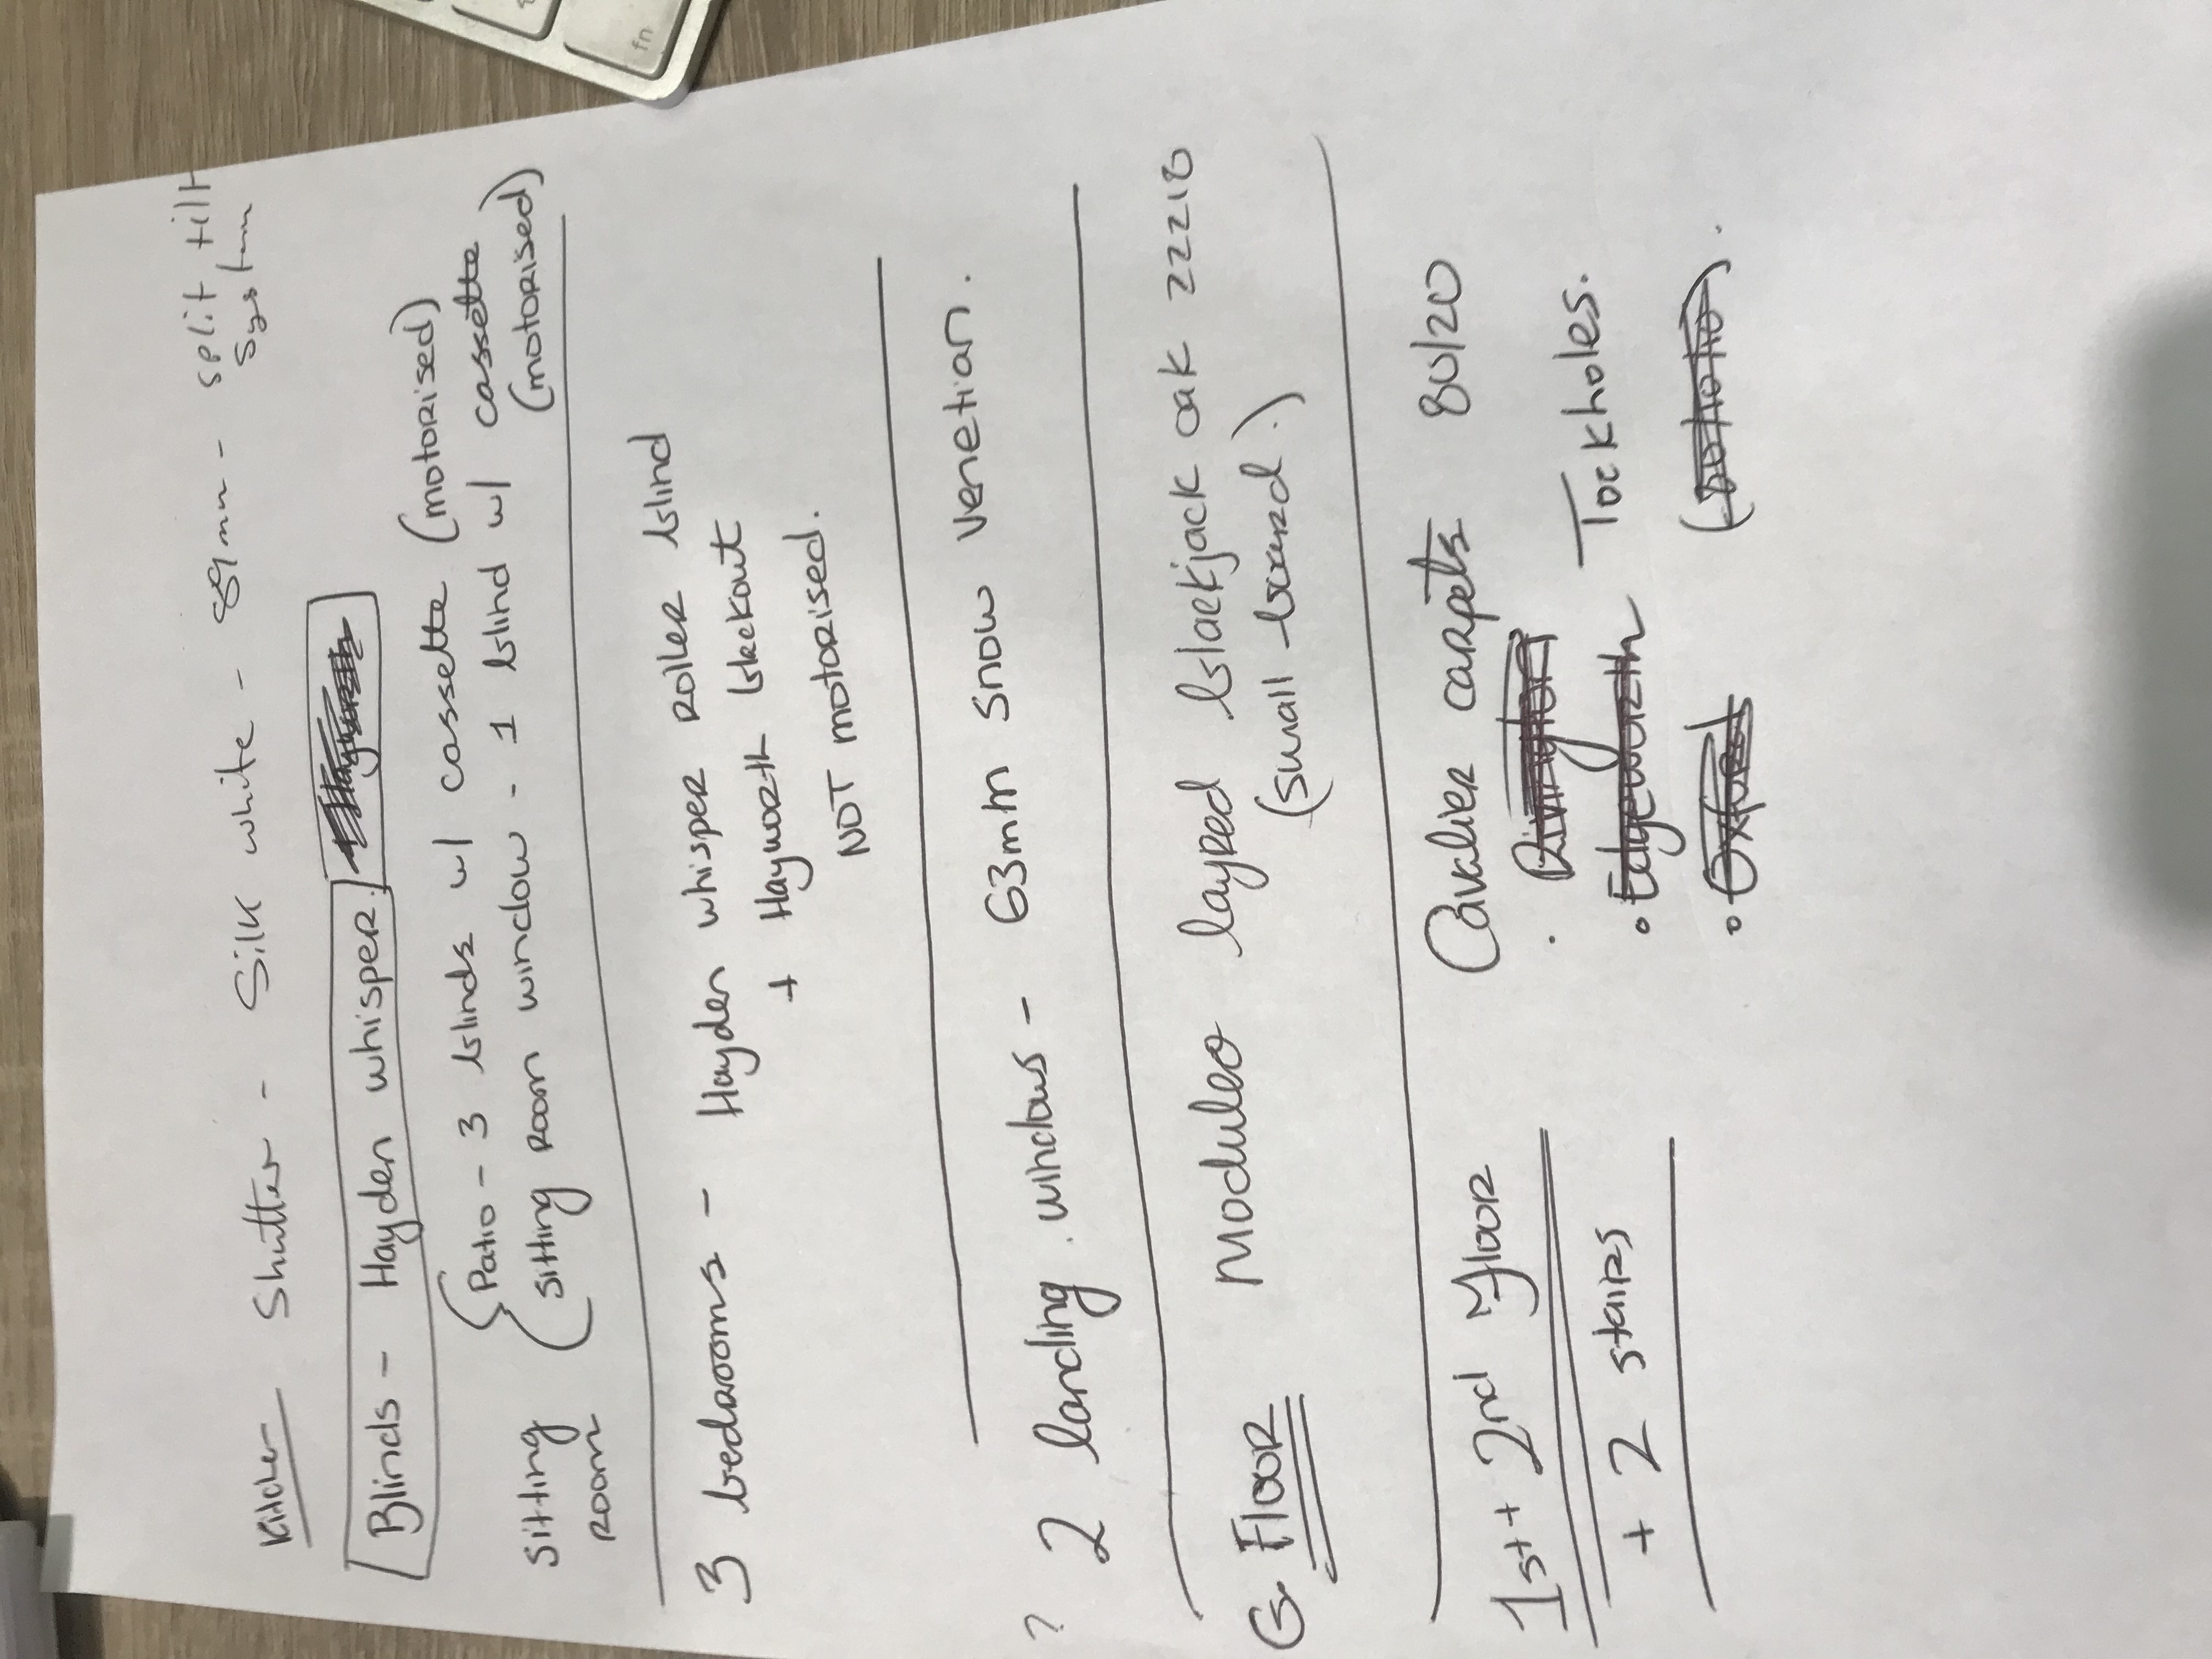 fn
Kitchen Shutter - Silk white - 89mm - split tilt
system
Blinds - Hayden whisper.
Patio - 3 blinds w/ cassette (motorised)
sitting room
sitting room window - 1 blind w/ cassette
(motorised)
3 bedrooms - Hayden whisper roller blind
+ Hayworth blackout
NOT motorised.
? 2 landing windows - 63mm snow venetian.
G. Floor Moduleo layred blackjack oak 22218
(small board.)
1st + 2nd Floor Cavalier carpets 80/20
. Rivington
+ 2 stairs
• Edgeworth Tockholes.
• Oxford